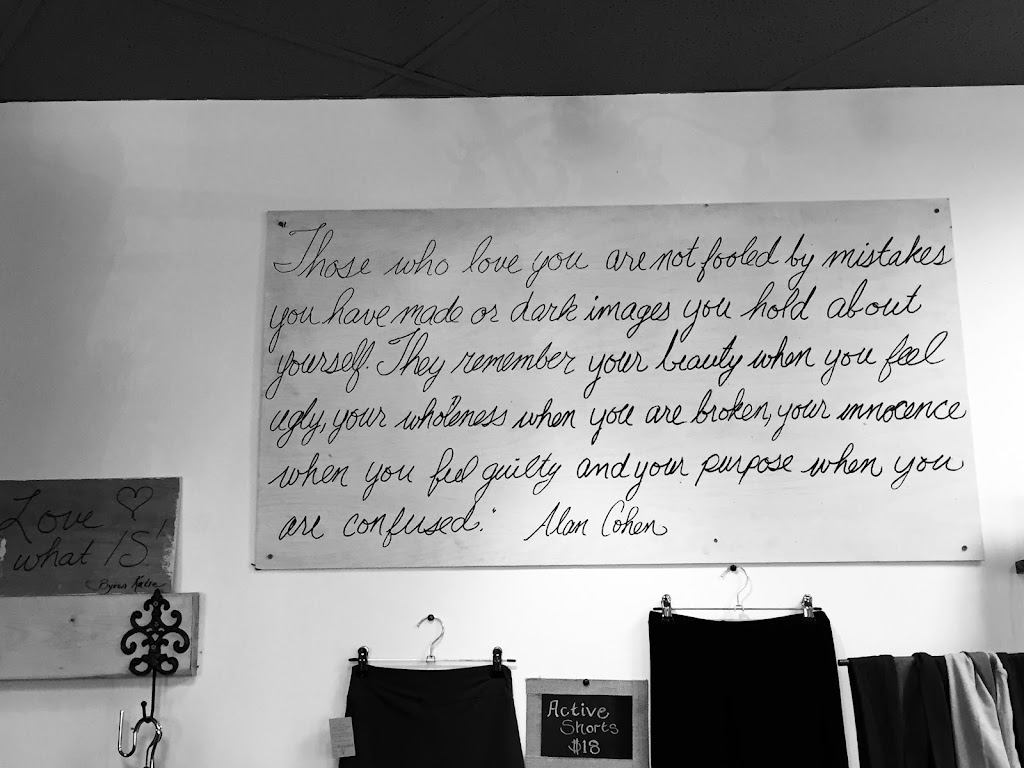 "Those who love you are not fooled by mistakes
you have made or dark images you hold about
yourself. They remember your beauty when you feel
ugly, your wholeness when you are broken, your innocence
when you feel guilty and your purpose when you
are confused." Alan Cohen
Love ♡
what IS!
Byron Katie
Active
Shorts
$18